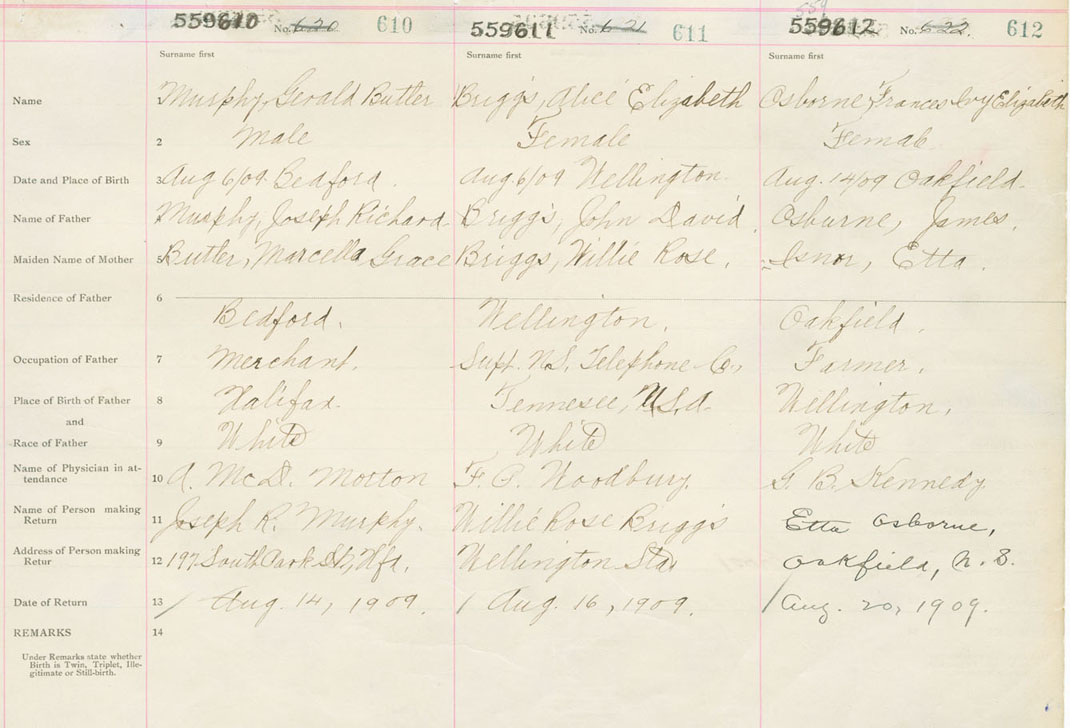 559610 No. 620 610 559611 No. 621 611 559612 No. 622. 612
Surname first Surname first Surname first
Name 1 Murphy, Gerald Butler Briggs, Alice Elizabeth Osborne, Frances Ivy Elizabeth
Sex 2 Male Female Female
Date and Place of Birth 3 Aug 6/09 Bedford. Aug 6/09 Wellington. Aug. 14/09 Oakfield.
Name of Father Murphy, Joseph Richard Briggs, John David, Osburne, James,
Maiden Name of Mother 5 Butler, Marcella Grace Briggs, Willie Rose, Isnor, Etta.
Residence of Father 6
Bedford. Wellington, Oakfield.
Occupation of Father 7 Merchant. Supt. N.S. Telephone Co., Farmer.
Place of Birth of Father 8 Halifax. Tennesee, U.S.A. Wellington,
and
Race of Father 9 White White White
Name of Physician in at-
tendance 10 A. McD. Morton F. P. Woodbury. G. B. Kennedy
Name of Person making
Return 11 Joseph R. Murphy. Willie Rose Briggs Etta Osborne,
Address of Person making
Retur 12 197 South Park St, Hfx. Wellington Sta Oakfield, N.S.
Date of Return 13 / Aug. 14, 1909. / Aug. 16, 1909. / Aug. 20, 1909.
REMARKS 14
Under Remarks state whether
Birth is Twin, Triplet, Ille-
gitimate or Still-birth.